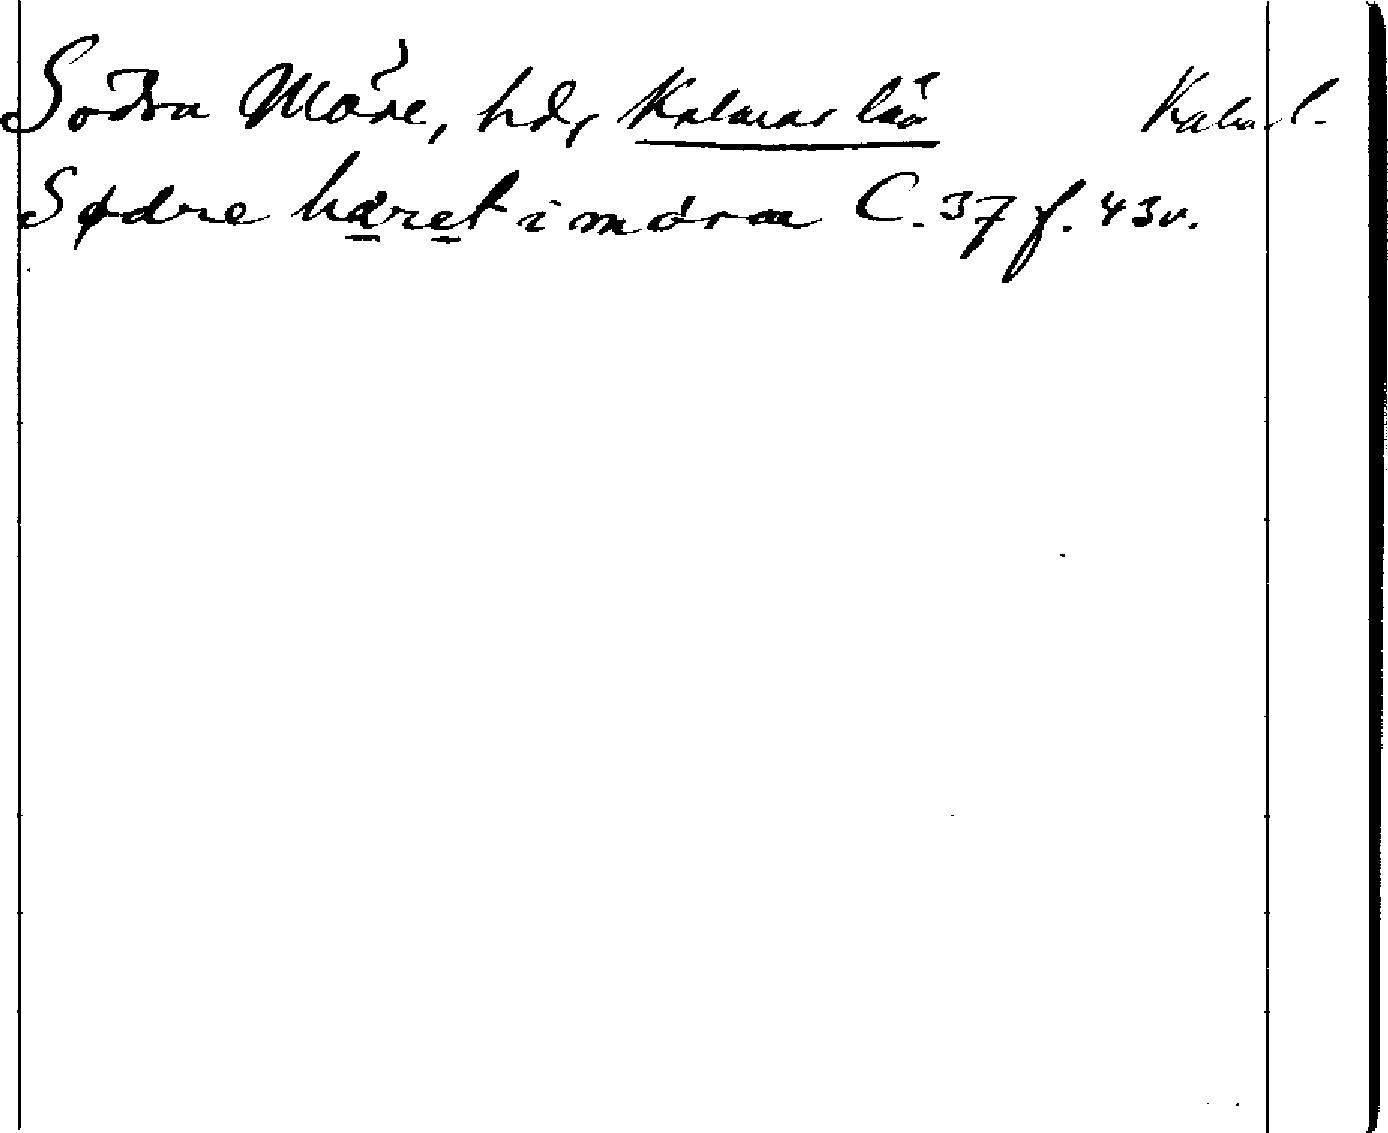 Södra Möre, hd, Kalmar län Kalm. l.
Sødre häret i möræ C. 37 f. 43v.